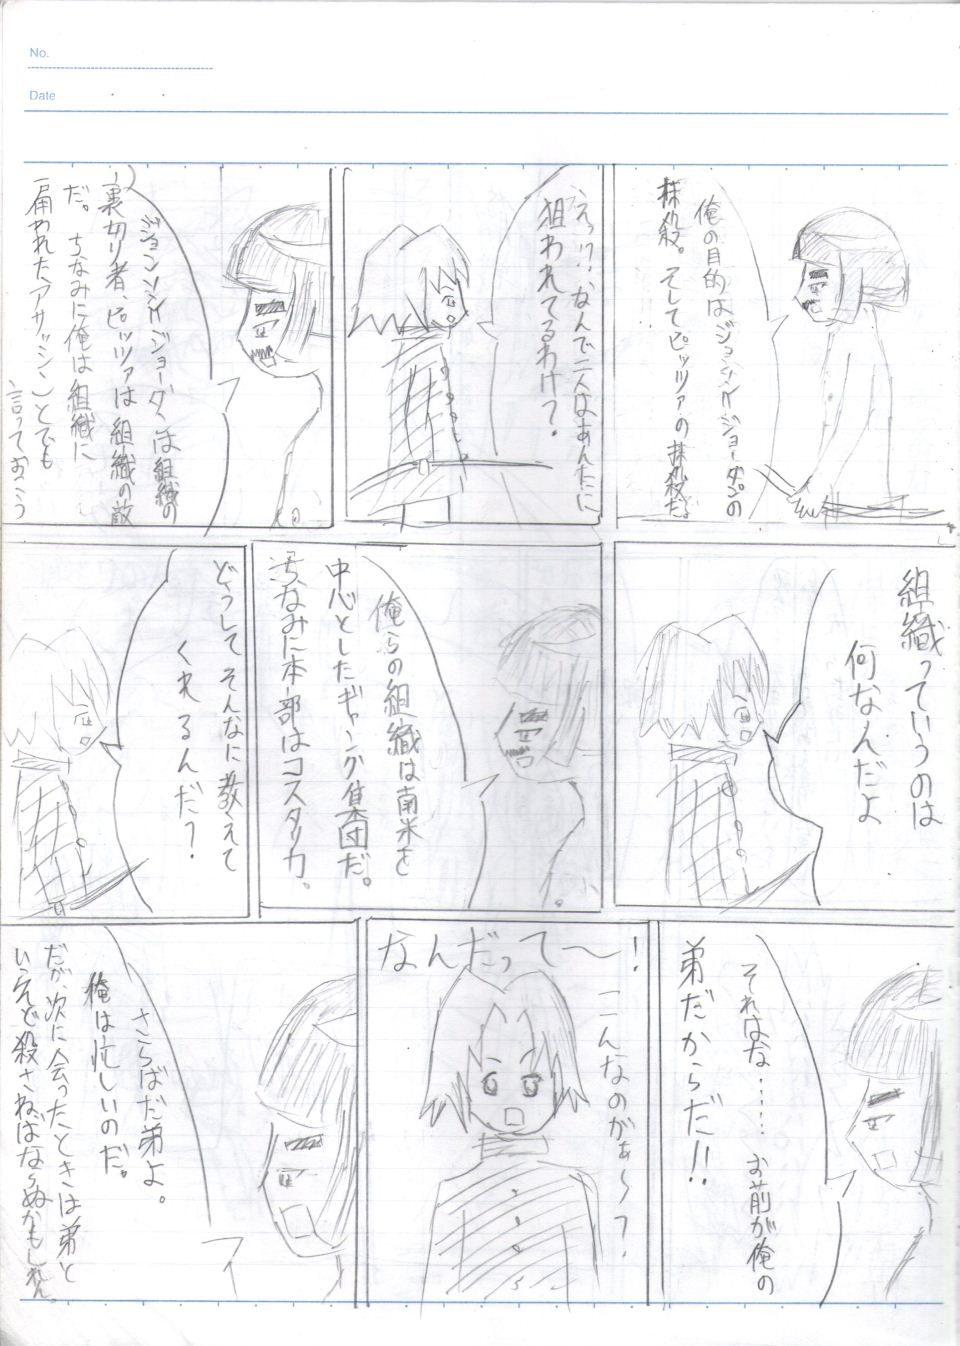 No.
Date
俺の目的はジョンソンJrジョーダンの
抹殺。そしてピッツァの抹殺だ。
えっ!?なんで二人はあんたに
狙われてるわけ?
ジョンソンJrジョーダンは組織の
裏切り者、ピッツァは組織の敵
だ。ちなみに俺は組織に
雇われたアサッシンとでも
言っておこう
組織っていうのは
何なんだよ
俺らの組織は南米を
中心としたギャング集団だ。
ちなみに本部はコスタリカ。
どうしてそんなに教えて
くれるんだ?
それはな……お前が俺の
弟だからだ!!
なんだって〜!
こんなのがぁ〜?
さらばだ弟よ。
俺は忙しいのだ。
だが、次に会ったときは弟と
いえど殺さねばならぬかもしれん。